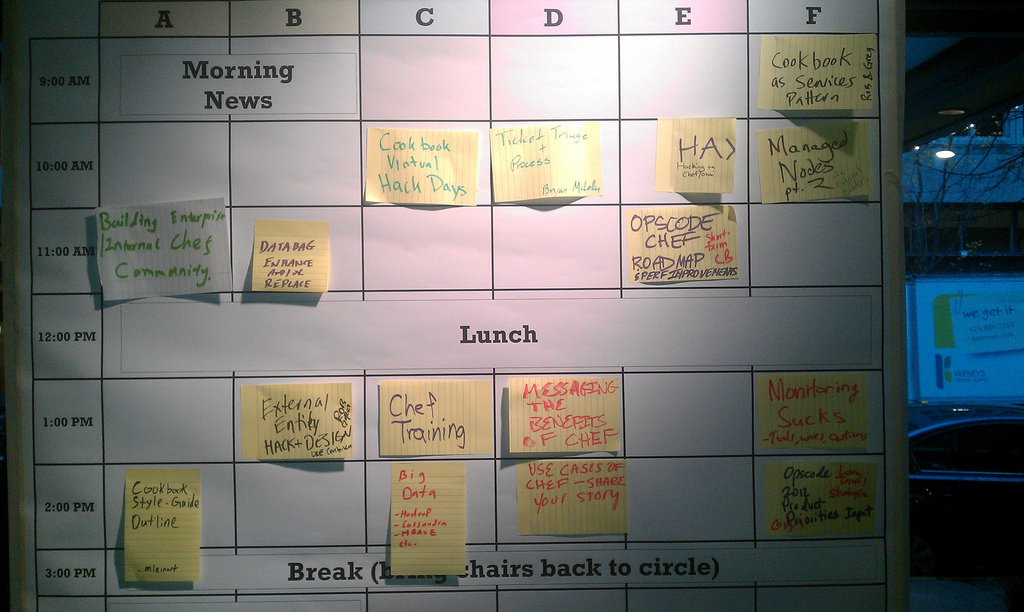 A B C D E F
9:00 AM
Morning
News
Cookbook
as Services
Pattern
10:00 AM
Cookbook
Virtual
Hack Days
Ticket Triage
+
Process
Brian
HA
Hacking on
Managed
Nodes
pt. 2
11:00 AM
Building Enterprise
Internal Chef
Community.
DATABAG
ENHANCE
AND/OR
REPLACE
OPSCODE
CHEF
ROADMAP
& PERF IMPROVEMENTS
Short-
term
CB
12:00 PM
Lunch
1:00 PM
External
Entity
HACK + DESIGN
Chef
Training
MESSAGING
THE
BENEFITS
OF CHEF
Monitoring
Sucks
2:00 PM
Cookbook
Style-Guide
Outline
Big
Data
- Hadoop
- Cassandra
- HBASE
etc.
USE CASES OF
CHEF - SHARE
YOUR STORY
Opscode
2012
Product
Priorities Input
Long
Strategic
3:00 PM
Break (bring chairs back to circle)
we get it
KEENEY'S